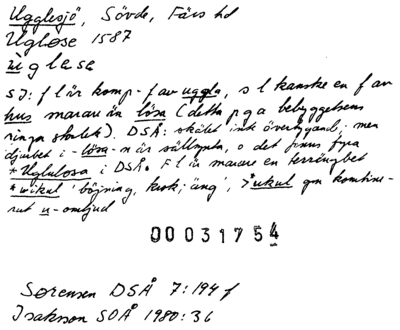 Ugglesjö, Sövde, Färs hd
Uglose 1587
uglase
SJ: f l är komp-f av uggla, s l kanske en f av
hus snarare än lösa (detta p g a bebyggelsens
ringa storlek). DSÅ: skälet inte övertygande, men
djuret i -lösa-n är sällsynta, o det finns fyra
*Uglulosa i DSÅ. F l är snarare en terrängbet
*wikul 'böjning, krok; äng', > *ukul gm kombine-
rat u-omljud
00031754
Sørensen DSÅ 7:194 f
Isaksson SOÅ 1980:36